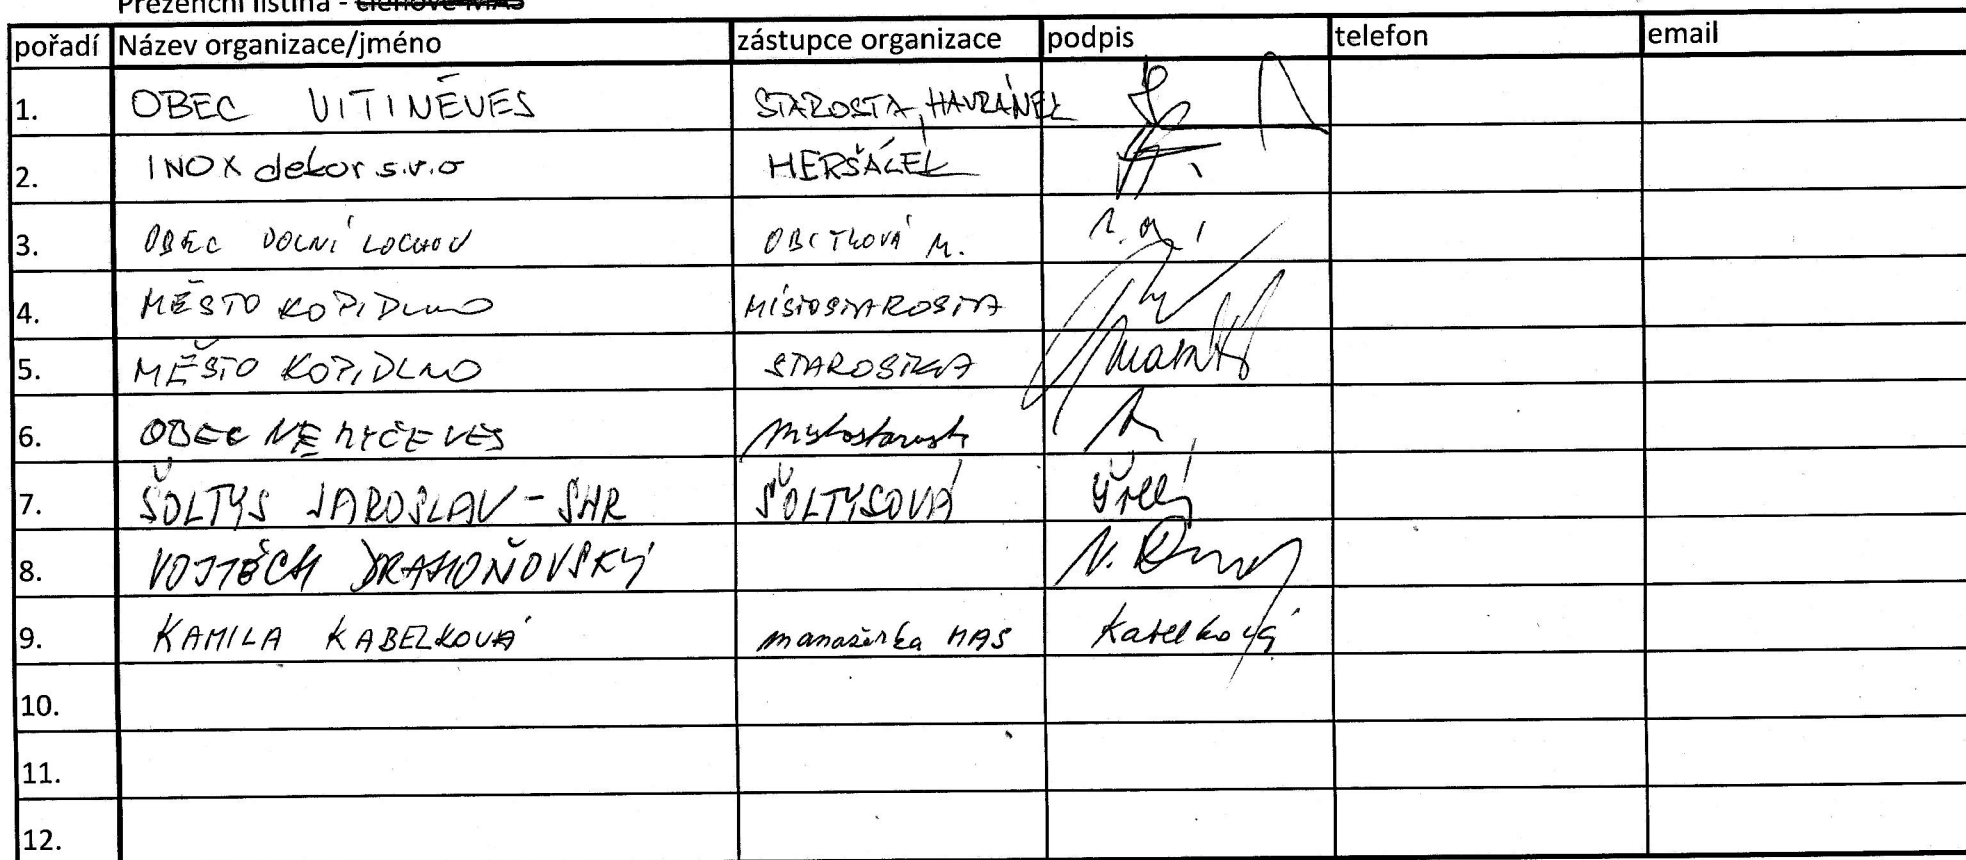 Prezenční listina - členové MAS
pořadí Název organizace/jméno zástupce organizace podpis telefon email
1. OBEC VITINĚVES STAROSTA, HAVRÁNEK
2. INOX dekor s.r.o HERŠÁLEK
3. OBEC DOLNÍ LOCHOV M.
4. MĚSTO KOPIDLNO MÍSTOSTAROSTA
5. MĚSTO KOPIDLNO STAROSTKA
6. OBEC NEMYČEVES místostarosta
7. ŠOLTYS JAROSLAV - SHR ŠOLTYSOVÁ
8. VOJTĚCH DRAHOŇOVSKÝ
9. KAMILA KABELKOVÁ manažerka MAS Kabelková
10.
11.
12.